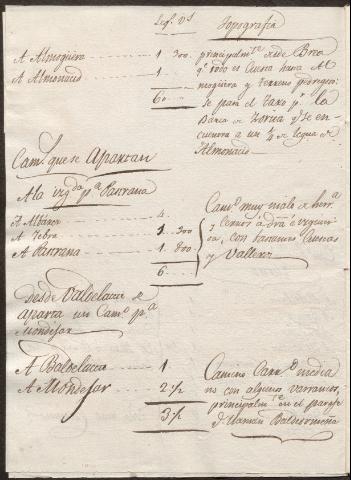 Leg.s V.s Topografia
A Almoguera 1 300. principalm.te desde Brea
A Almonacid 1 q.e todo es Cuesta hasta Al
moguera y terreno pedregoso:
6 se pasa el Taxo p.r la
Barca de Zorita y se en
cuentra a un 1/4 de legua de
Almonacid.
Cam.s que se Apartan
A la izq.da p.a Pastrana
A Albares 4 Cam.o muy malo de herr.a
A Yebra 1 300 y Cerros á dra. é izquier
A Pastrana 1 800 da, con bastantes Cuestas
6 y Valles
desde Valdelacu se
aparta un Cam.o p.a
Mondejar
A Baldelacu 1 Camino Carr.o media
A Mondejar 2 1/2 no con algunos barrancos,
3 1/2 principalm.te en el parage